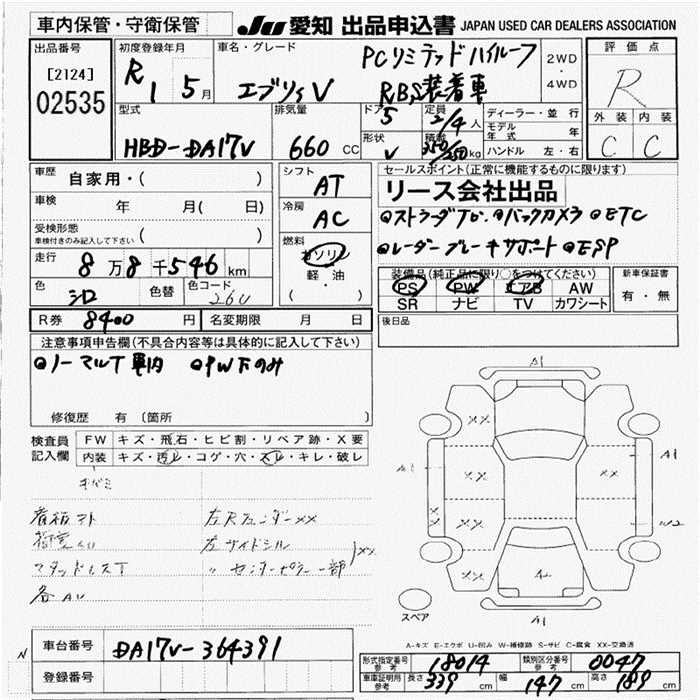 車内保管・守衛保管 JU 愛知 出品申込書 JAPAN USED CAR DEALERS ASSOCIATION
出品番号
[2124]
02535
初度登録年月
R1 5月
車名・グレード
エブリィV
PCリミテッドハイルーフ
RBS装着車
2WD
・
4WD
評価点
R
外装 内装
C C
型式
HBD-DA17V
排気量
660 CC
ドア
5
形状
V
定員
2/4人
積載
350/250kg
ディーラー・並行
モデル年式 年
ハンドル 左・右
車歴
自家用・( )
車検 年 月( 日)
受検形態
車検付きのみ記入して下さい ( )
走行 8万8千546km
色 シロ 色替 色コード 26U
シフト
AT
冷房
AC
燃料
ガソリン
軽・油
( ・ )
セールスポイント(正常に機能するものに限ります)
リース会社出品
●ストラーダナビ ●バックカメラ ●ETC
●レーダーブレーキサポート ●ESP
装備品(純正品に限り○をつけてください)
PS PW エアB AW
SR ナビ TV カワシート
新車保証書
有・無
R券 8400円 名変期限 月 日
後日品
注意事項申告欄(不具合内容等は具体的に記入して下さい)
●ノーマルT車内 ●PW下のみ
修復歴 有 〔箇所 〕
検査員記入欄
FW キズ・飛石・ヒビ割・リペア跡・X要
内装 キズ・汚レ・コゲ・穴・スレ・キレ・破レ
キバミ
看板アト
マッドレスT
各AU
左Rフェンダーxx
左サイドシル
〃センターピラー一部
xx
A1
xx
xx
xx
A1
A1
xx
xx
W2
xx
xx
A1
スペア
A-キズ E-エクボ U-凹み W-補修跡 S-サビ C-腐食 XX-交換済
N
車台番号 DA17V-364391
登録番号
形式指定番号 参考 18014 類別区分番号 参考 0047
車庫証明用 参考 長さ 339cm 幅 147cm 高さ 189cm